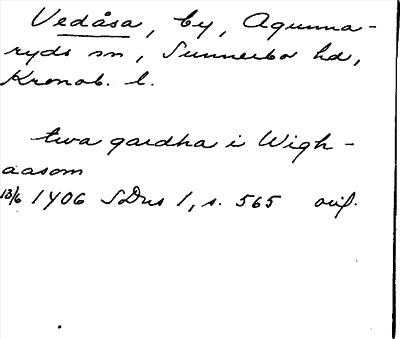 Vedåsa, by, Agunna-
ryds sn, Sunnerbo hd,
Kronob. l.
twa gardha i Wigh-
aasom
13/6 1406 SDns 1, s. 565 avs.